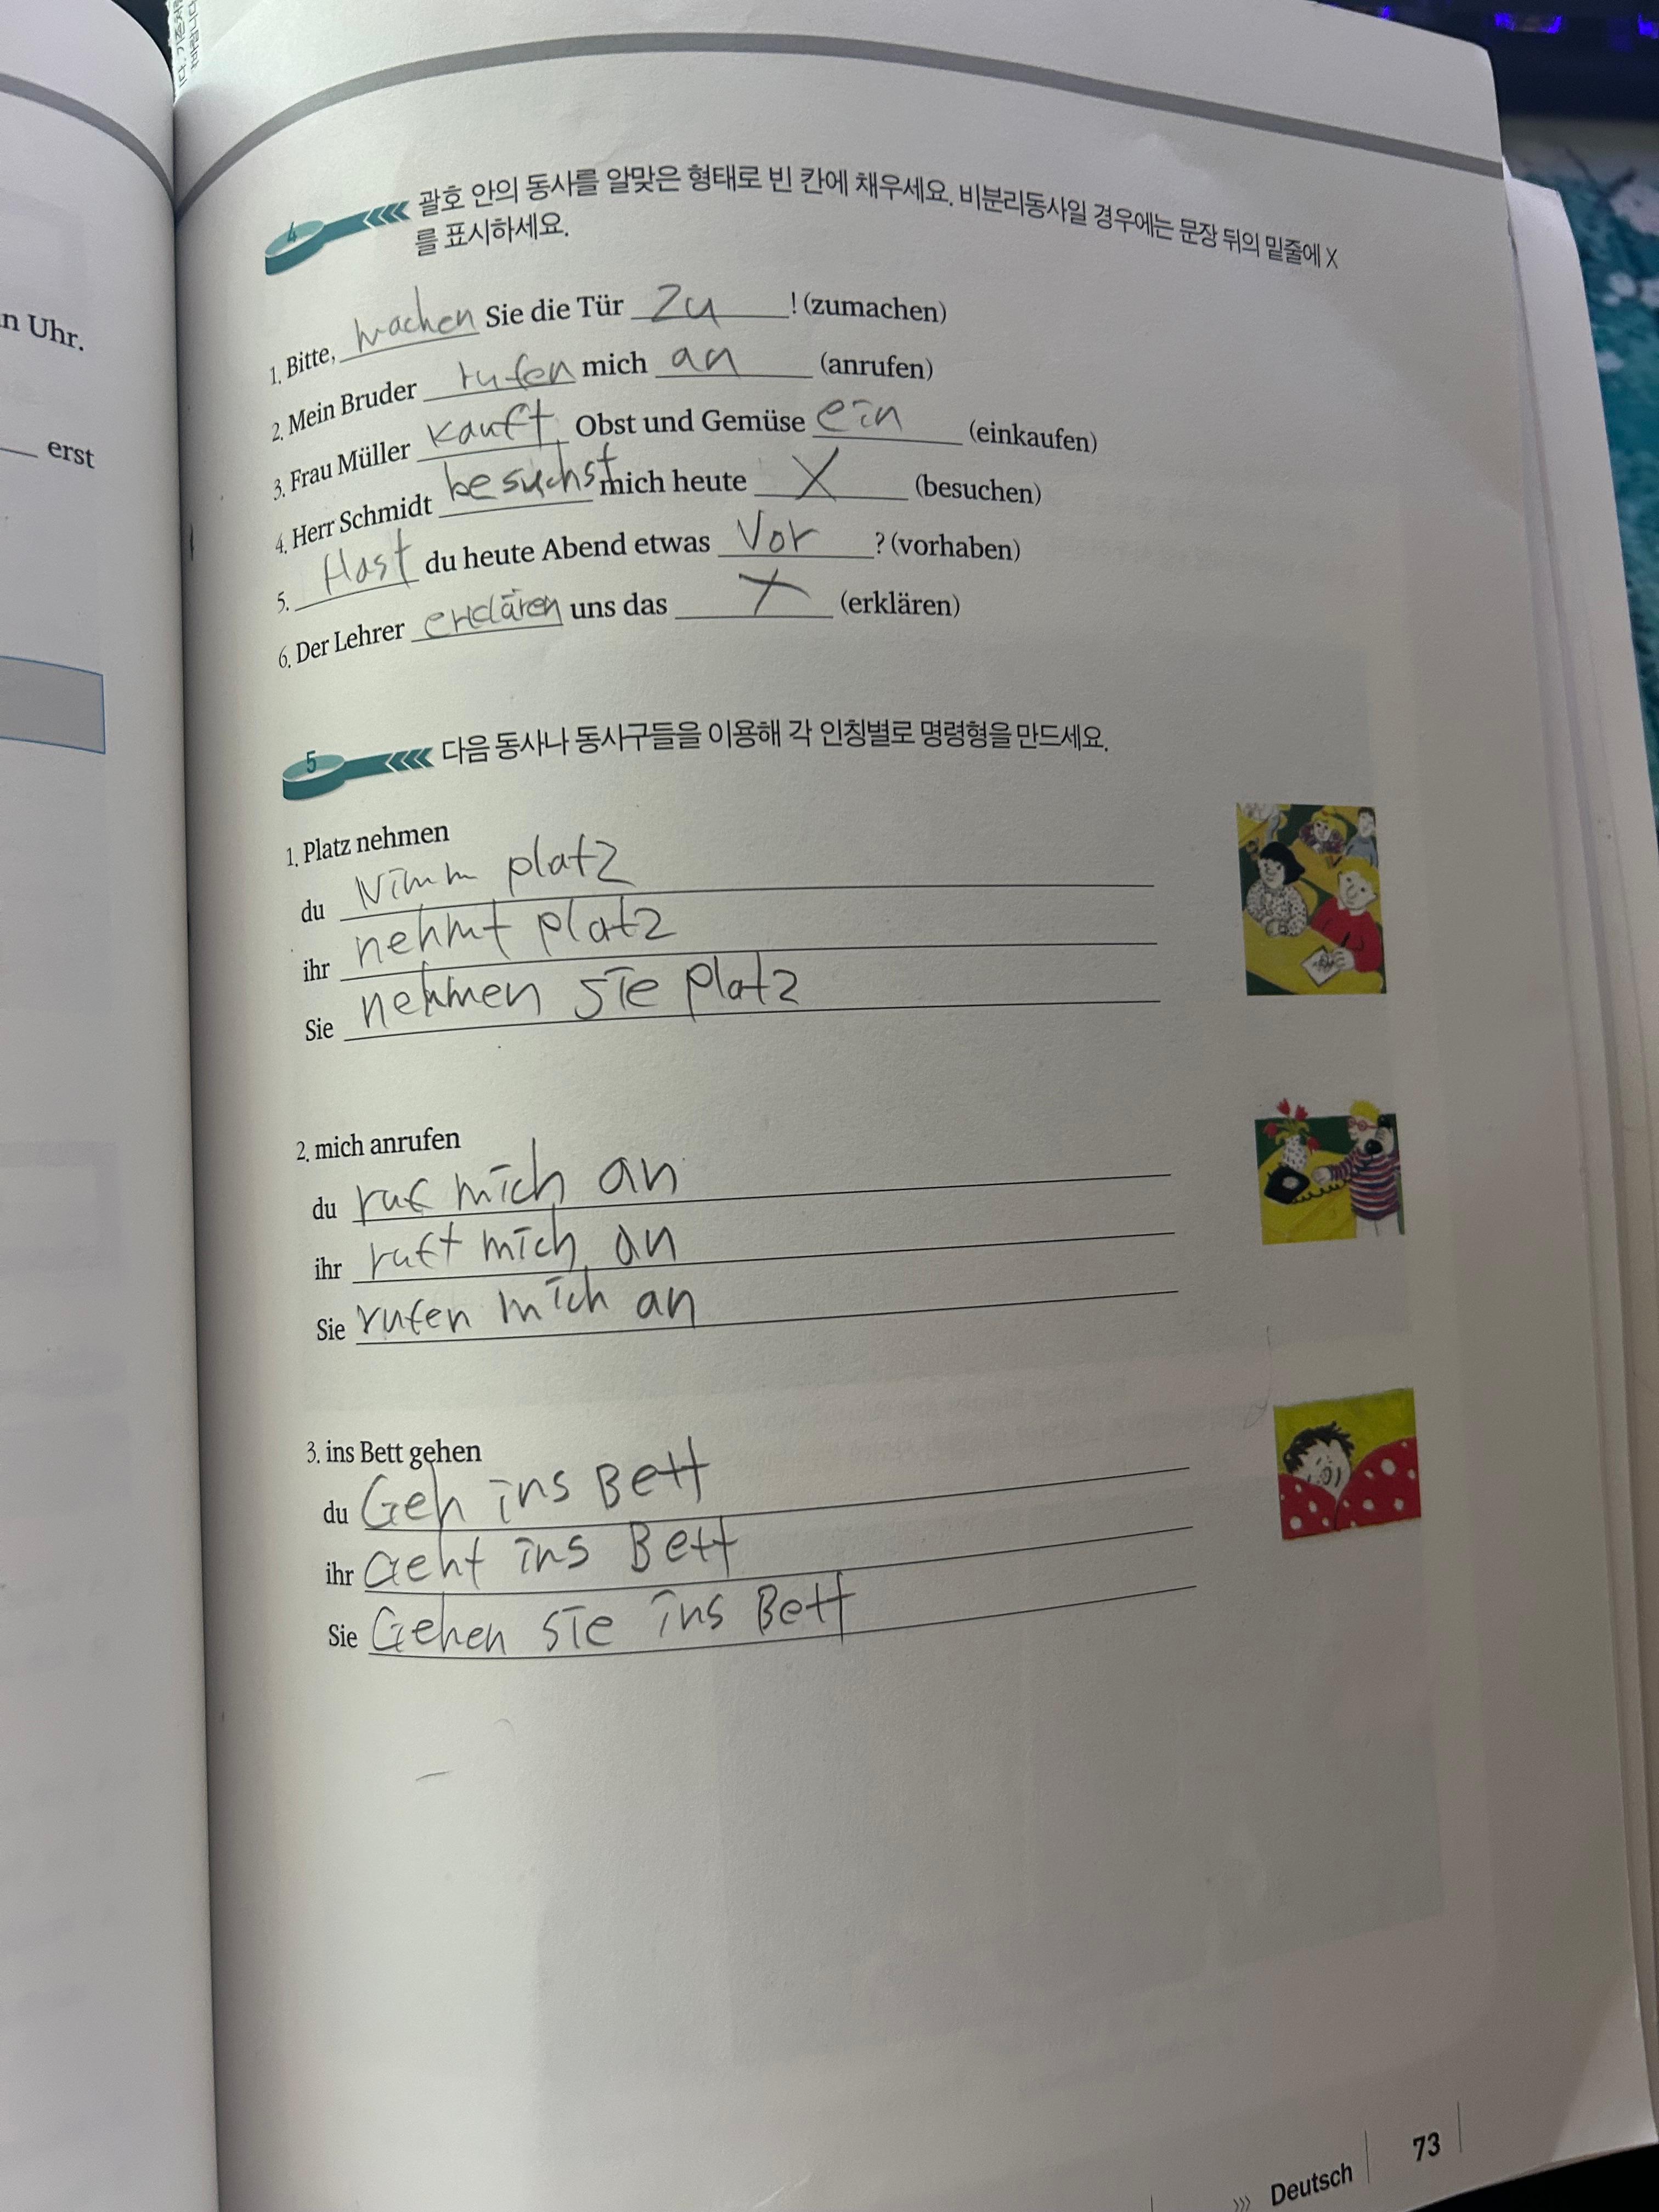 n Uhr.
erst
4 괄호 안의 동사를 알맞은 형태로 빈 칸에 채우세요. 비분리동사일 경우에는 문장 뒤의 밑줄에 X
를 표시하세요.
1. Bitte, machen Sie die Tür zu ! (zumachen)
2. Mein Bruder rufen mich an (anrufen)
3. Frau Müller kauft Obst und Gemüse ein (einkaufen)
4. Herr Schmidt besuchst mich heute X (besuchen)
5. Hast du heute Abend etwas vor ? (vorhaben)
6. Der Lehrer erklären uns das X (erklären)
5 다음 동사나 동사구들을 이용해 각 인칭별로 명령형을 만드세요.
1. Platz nehmen
du Nimm platz
ihr nehmt platz
Sie nehmen sie platz
2. mich anrufen
du ruf mich an
ihr ruft mich an
Sie rufen mich an
3. ins Bett gehen
du Geh ins Bett
ihr Geht ins Bett
Sie Gehen sie ins Bett
>>> Deutsch 73